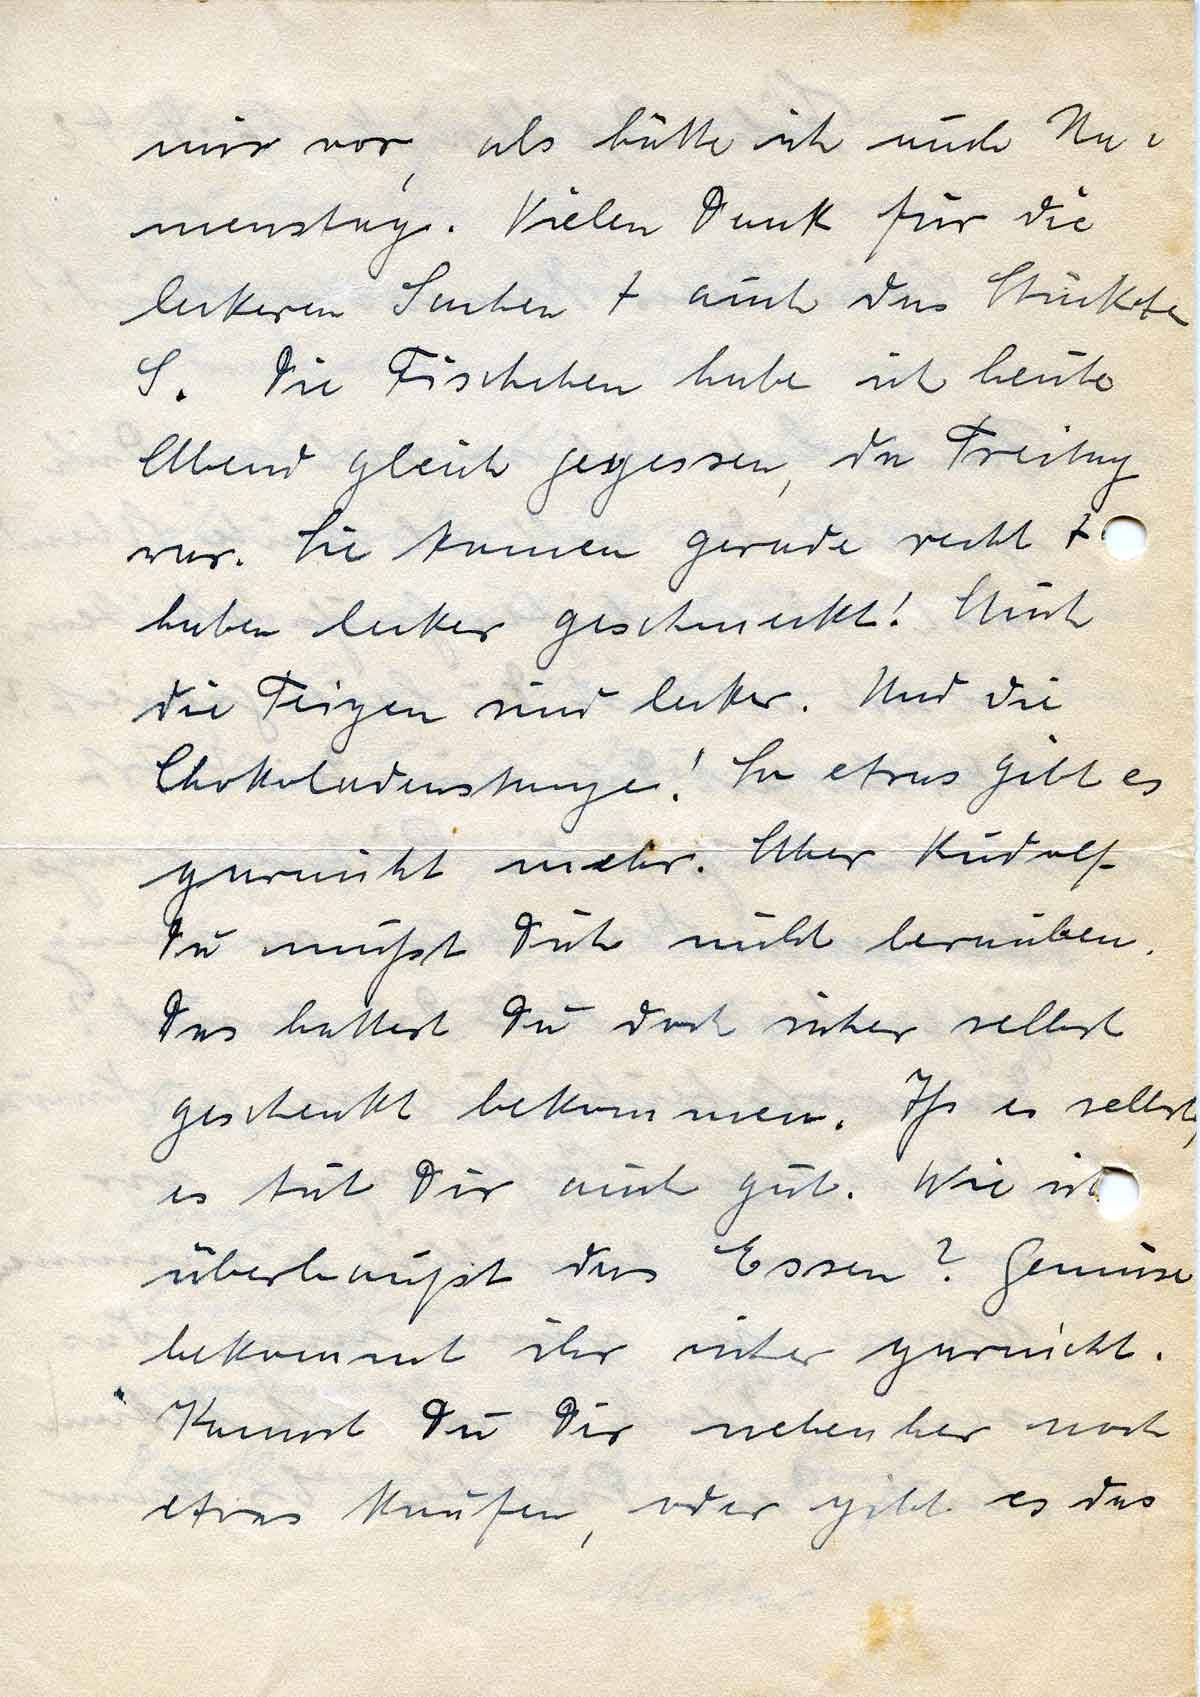 mir vor, als hätte ich auch Na-
menstag. Vielen Dank für die
leckeren Sachen + auch das Stückche
S. Die Fischchen habe ich heute
Abend gleich gegessen, da Freitag
war. Sie kamen gerade recht +
haben lecker geschmeckt! Auch
die Feigen sind lecker. Und die
Chokoladenstange! So etwas gibt es
garnicht mehr. Aber Rudolf
Du mußt Dich nicht berauben.
Das hattest Du doch sicher selbst
geschenkt bekommen. Iß es selbst,
es tut Dir auch gut. Wie ist
überhaupt das Essen? Gemüse
bekommt ihr sicher garnicht.
Kannst Du Dir nebenher noch
etwas kaufen, oder gibt es das